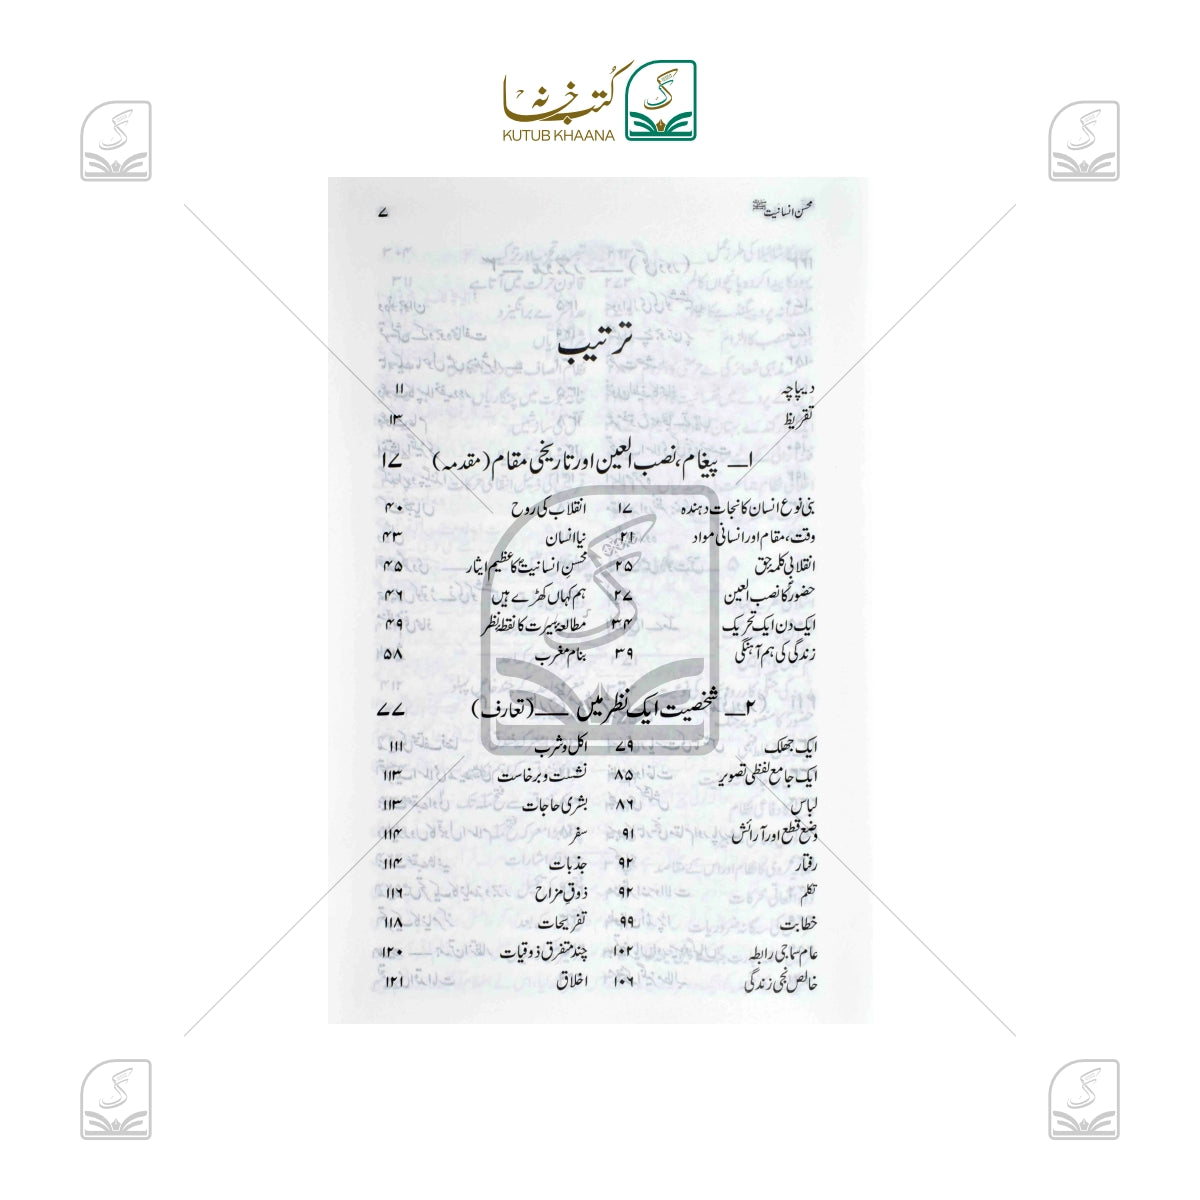 کتب خانہ
KUTUB KHAANA
محسن انسانیت ﷺ ۷
ترتیب
دیباچہ ۱۱
تقریظ ۱۳
۱ــ پیغام، نصب العین اور تاریخی مقام (مقدمہ) ۱۷
بنی نوع انسان کا نجات دہندہ ۱۷ انقلاب کی روح ۴۰
وقت، مقام اور انسانی مواد ۲۱ نیا انسان ۴۳
انقلابی کلمۂ حق ۲۵ محسنِ انسانیتؐ کا عظیم ایثار ۴۵
حضورؐ کا نصب العین ۲۷ ہم کہاں کھڑے ہیں ۴۶
ایک دن ایک تحریک ۳۴ مطالعۂ سیرت کا نقطۂ نظر ۴۹
زندگی کی ہم آہنگی ۳۹ بنام مغرب ۵۸
۲ــ شخصیت ایک نظر میں ــــ (تعارف) ۷۷
ایک جھلک ۷۹ اکل و شرب ۱۱۱
ایک جامع لفظی تصویر ۸۵ نشست و برخاست ۱۱۳
لباس ۸۶ بشری حاجات ۱۱۳
وضع قطع اور آرائش ۹۱ سفر ۱۱۴
رفتار ۹۲ جذبات ۱۱۴
تکلم ۹۲ ذوقِ مزاح ۱۱۶
خطابت ۹۹ تفریحات ۱۱۸
عام سماجی رابطہ ۱۰۲ چند متفرق ذوقیات ۱۲۰
خالص نجی زندگی ۱۰۶ اخلاق ۱۲۱